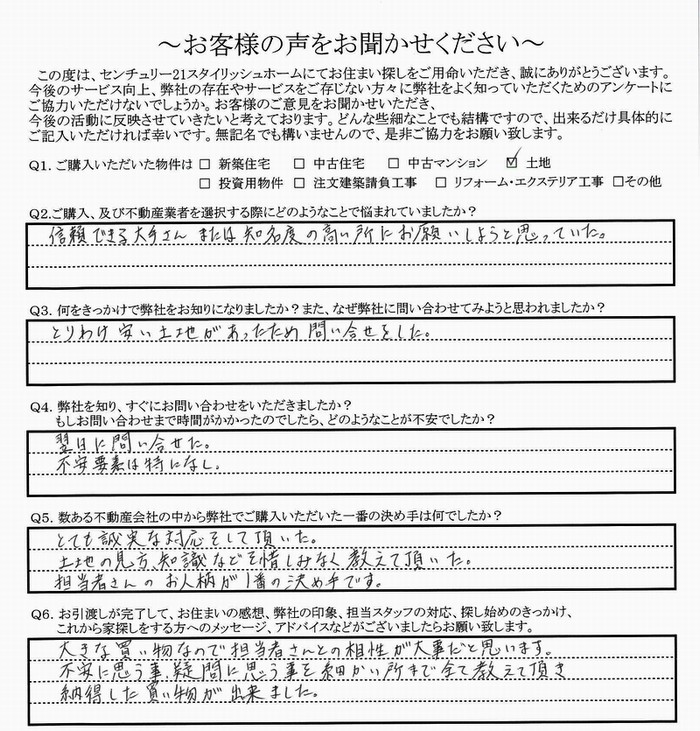 ～お客様の声をお聞かせください～
この度は、センチュリー21スタイリッシュホームにてお住まい探しをご用命いただき、誠にありがとうございます。
今後のサービス向上、弊社の存在やサービスをご存じない方々に弊社をよく知っていただくためのアンケートに
ご協力いただけないでしょうか。お客様のご意見をお聞かせいただき、
今後の活動に反映させていきたいと考えております。どんな些細なことでも結構ですので、出来るだけ具体的に
ご記入いただければ幸いです。無記名でも構いませんので、是非ご協力をお願い致します。
Q1. ご購入いただいた物件は □ 新築住宅 □ 中古住宅 □ 中古マンション ☑ 土地
□ 投資用物件 □ 注文建築請負工事 □ リフォーム・エクステリア工事 □その他
Q2.ご購入、及び不動産業者を選択する際にどのようなことで悩まれていましたか？
信頼できる大手さん または知名度の高い所にお願いしようと思っていた。
Q3. 何をきっかけで弊社をお知りになりましたか？また、なぜ弊社に問い合わせてみようと思われましたか？
とりわけ安い土地があったため問い合せをした。
Q4. 弊社を知り、すぐにお問い合わせをいただきましたか？
もしお問い合わせまで時間がかかったのでしたら、どのようなことが不安でしたか？
翌日に問い合せた。
不安要素は特になし。
Q5. 数ある不動産会社の中から弊社でご購入いただいた一番の決め手は何でしたか？
とても誠実な対応をして頂いた。
土地の見方、知識などを惜しみなく教えて頂いた。
担当者さんのお人柄が1番の決め手です。
Q6. お引渡しが完了して、お住まいの感想、弊社の印象、担当スタッフの対応、探し始めのきっかけ、
これから家探しをする方へのメッセージ、アドバイスなどがございましたらお願い致します。
大きな買い物なので担当者さんとの相性が大事だと思います。
不安に思う事、疑問に思う事を細かい所まで全て教えて頂き
納得した買い物が出来ました。